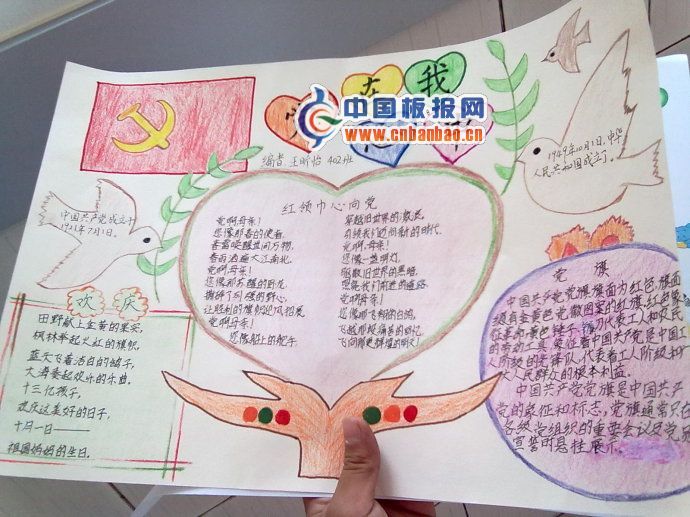 在我
心
中国板报网
www.cnbanbao.cn
编者 王昕怡 402班
1949年10月1日，中华
人民共和国成立了。
中国共产党成立于
1921年7月1日。
红领巾心向党
党啊母亲！
您像那春的使者，
春雷唤醒世间万物，
春雨洒遍大江南北。
党啊，母亲！
您像那苏醒的雄龙，
让胜利的旗帜迎风招展
党啊母亲！
您像船上的舵手，
穿越旧世界的激流，
党啊，母亲！
您像一盏明灯，
驱散旧世界的黑暗，
党啊母亲！
您像那飞翔的白鸽，
飞向那更辉煌的明天！
欢庆
田野献上金黄的果实，
枫林举起火红的旗帜，
蓝天飞着洁白的鸽子，
大海奏起欢乐的乐曲。
十三亿孩子，
欢庆这美好的日子，
十月一日——
祖国妈妈的生日。
党旗
中国共产党党旗旗面为红色，旗面
缀有金黄色党徽图案的红旗，红色象
征革命，黄色锤子、镰刀代表工人和农民
的劳动工具，象征着中国共产党是中国工
人阶级的先锋队，代表着工人阶级和广
大人民群众的根本利益。
中国共产党党旗是中国共产
党的象征和标志，党旗通常只在
各级党组织的重要会议及党员
宣誓时悬挂展示。